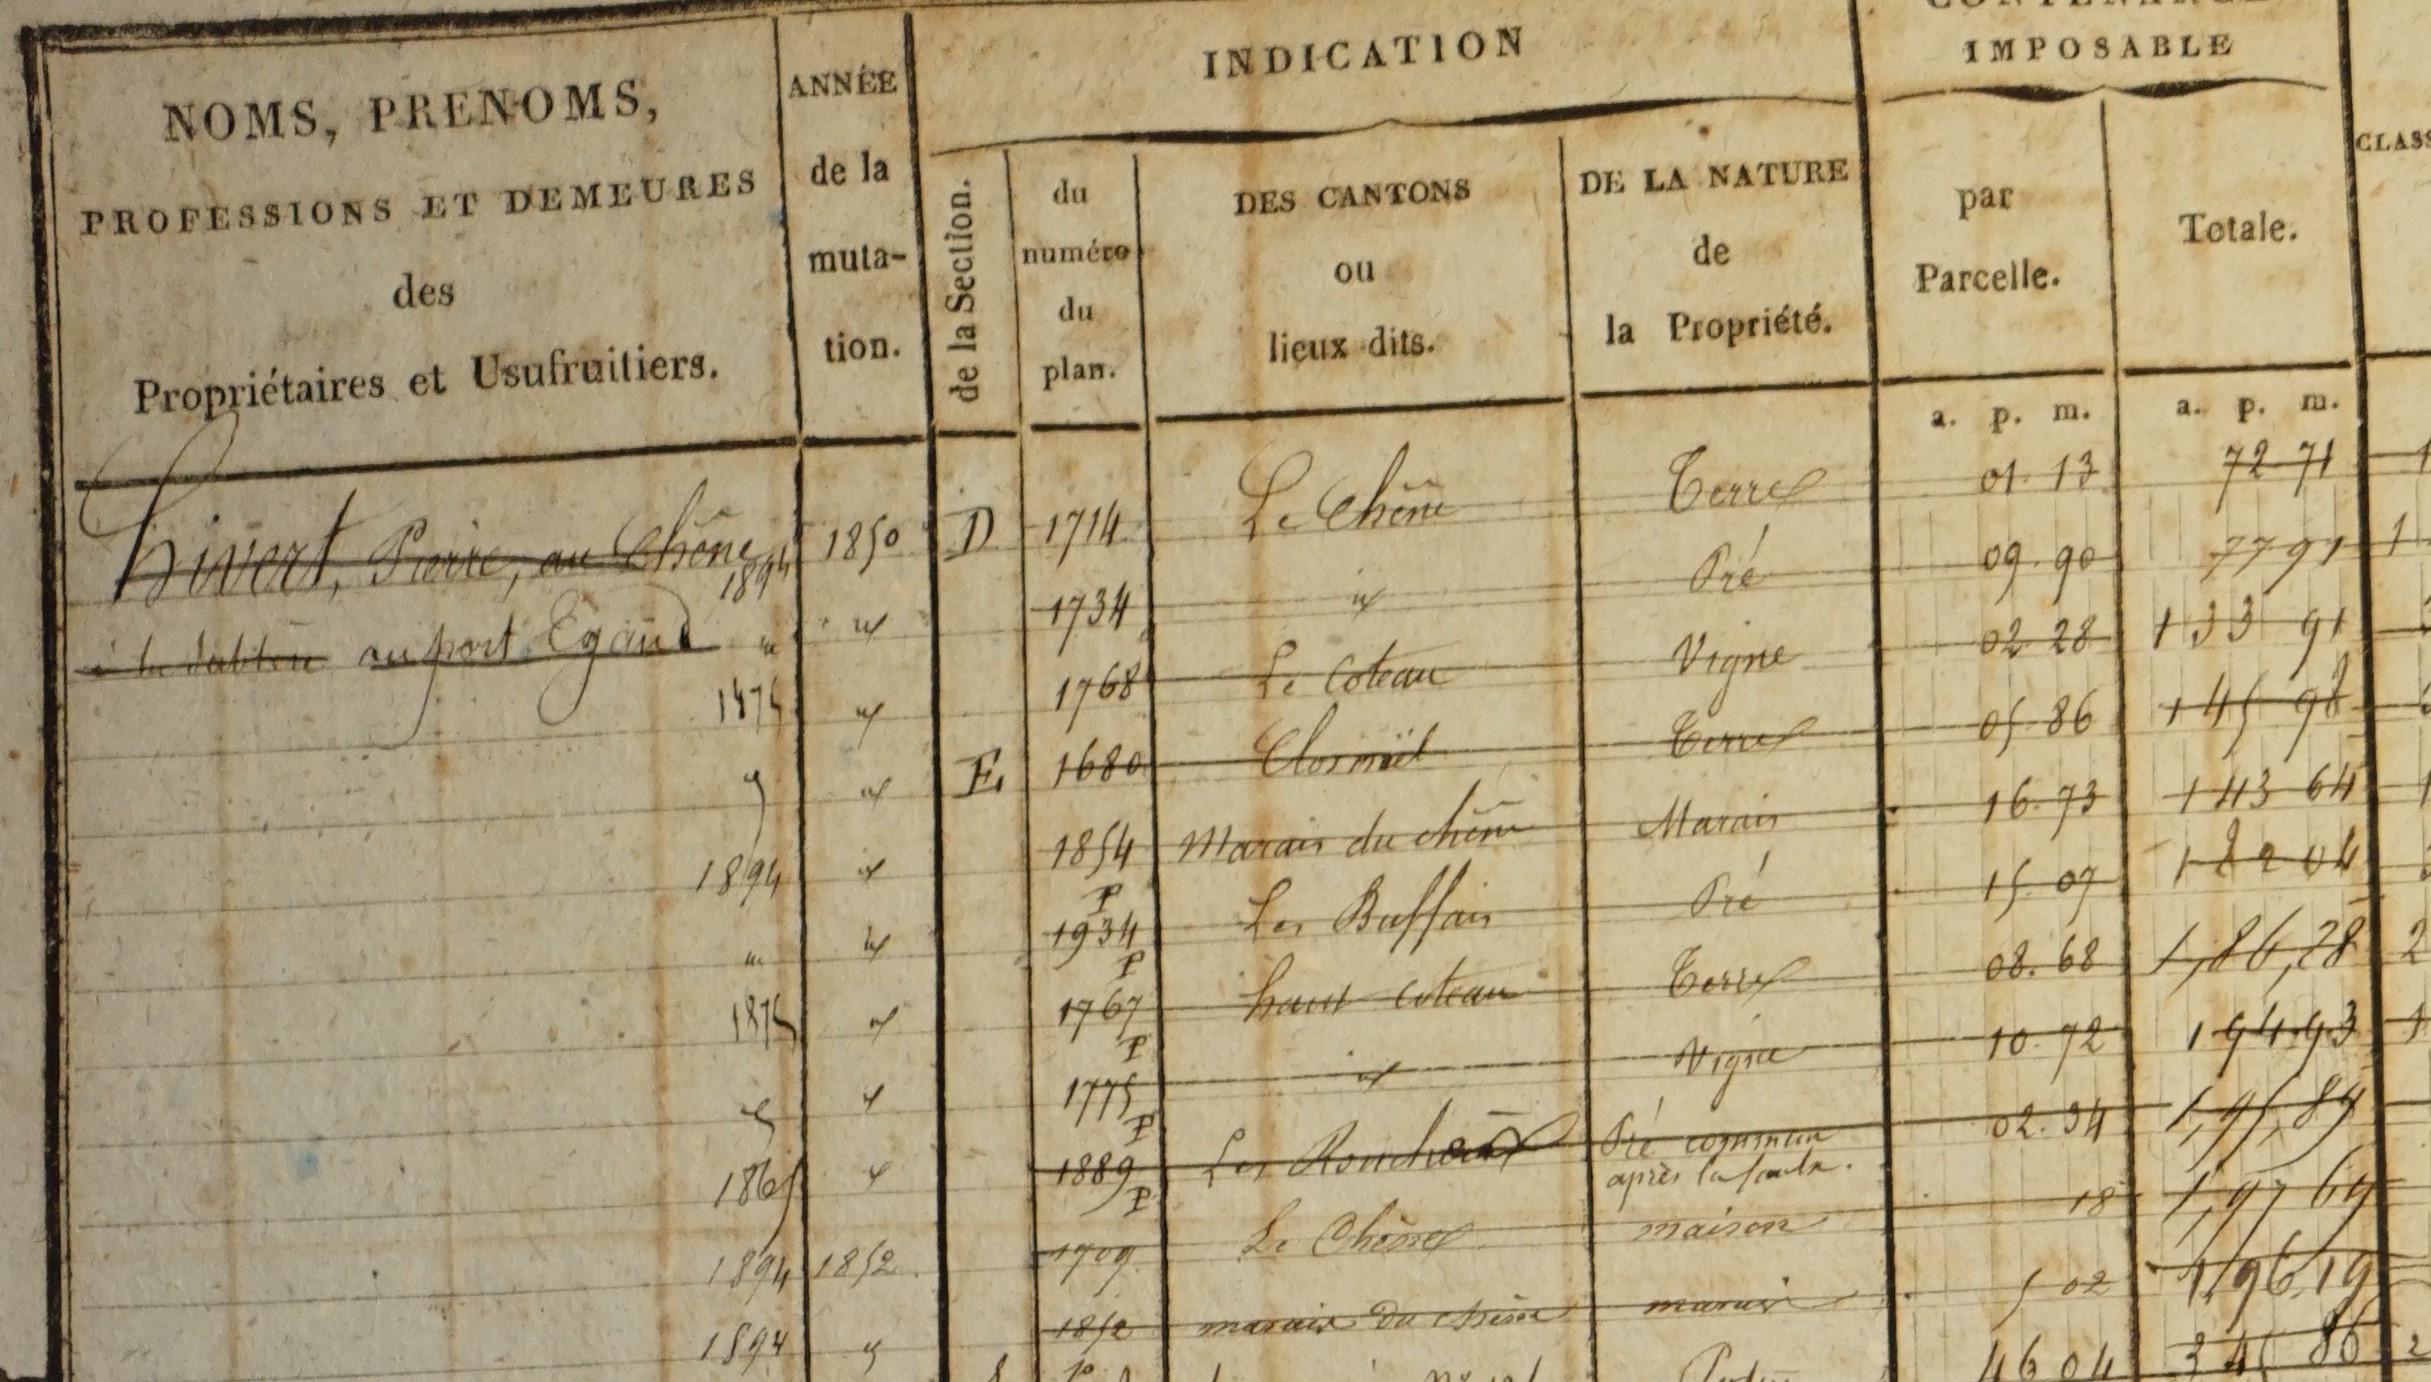 NOMS, PRENOMS,
PROFESSIONS ET DEMEURES
des
Propriétaires et Usufruitiers.
ANNÉE
de la
muta-
tion.
INDICATION
de la Section.
du
numéro
du
plan.
DES CANTONS
ou
lieux dits.
DE LA NATURE
de
la Propriété.
IMPOSABLE
par
Parcelle.
Totale.
CLASS
a. p. m. a. p. m.
hivert, Pierre, au Chêne 1894 1850 D 1714 Le Chêne Terre 01.13 72 71
au port Egaud " " 1734 " Pré 09.90 77 91 1
1875 " 1768 Le Coteau Vigne 02.28 133 91
" " E 1680 Terre 05.86 145 98
1894 " 1854 Marais du chêne Marais 16.73 143 64
" " P 1934 Les Buffais Pré 15.07 04
1875 " P 1767 haut coteau Terre 08.68 1,86,28 2
" " P 1775 " Vigne 10.72 194.93 1
1865 " P 1889 Les Pré commun 02.34 1,95,89
après la
P
1894 1852 1709 Le Chêne maison 18 1,97 69
1894 " 1852 marais du chêne marais 5 02 1,96,19
46 04 86 2